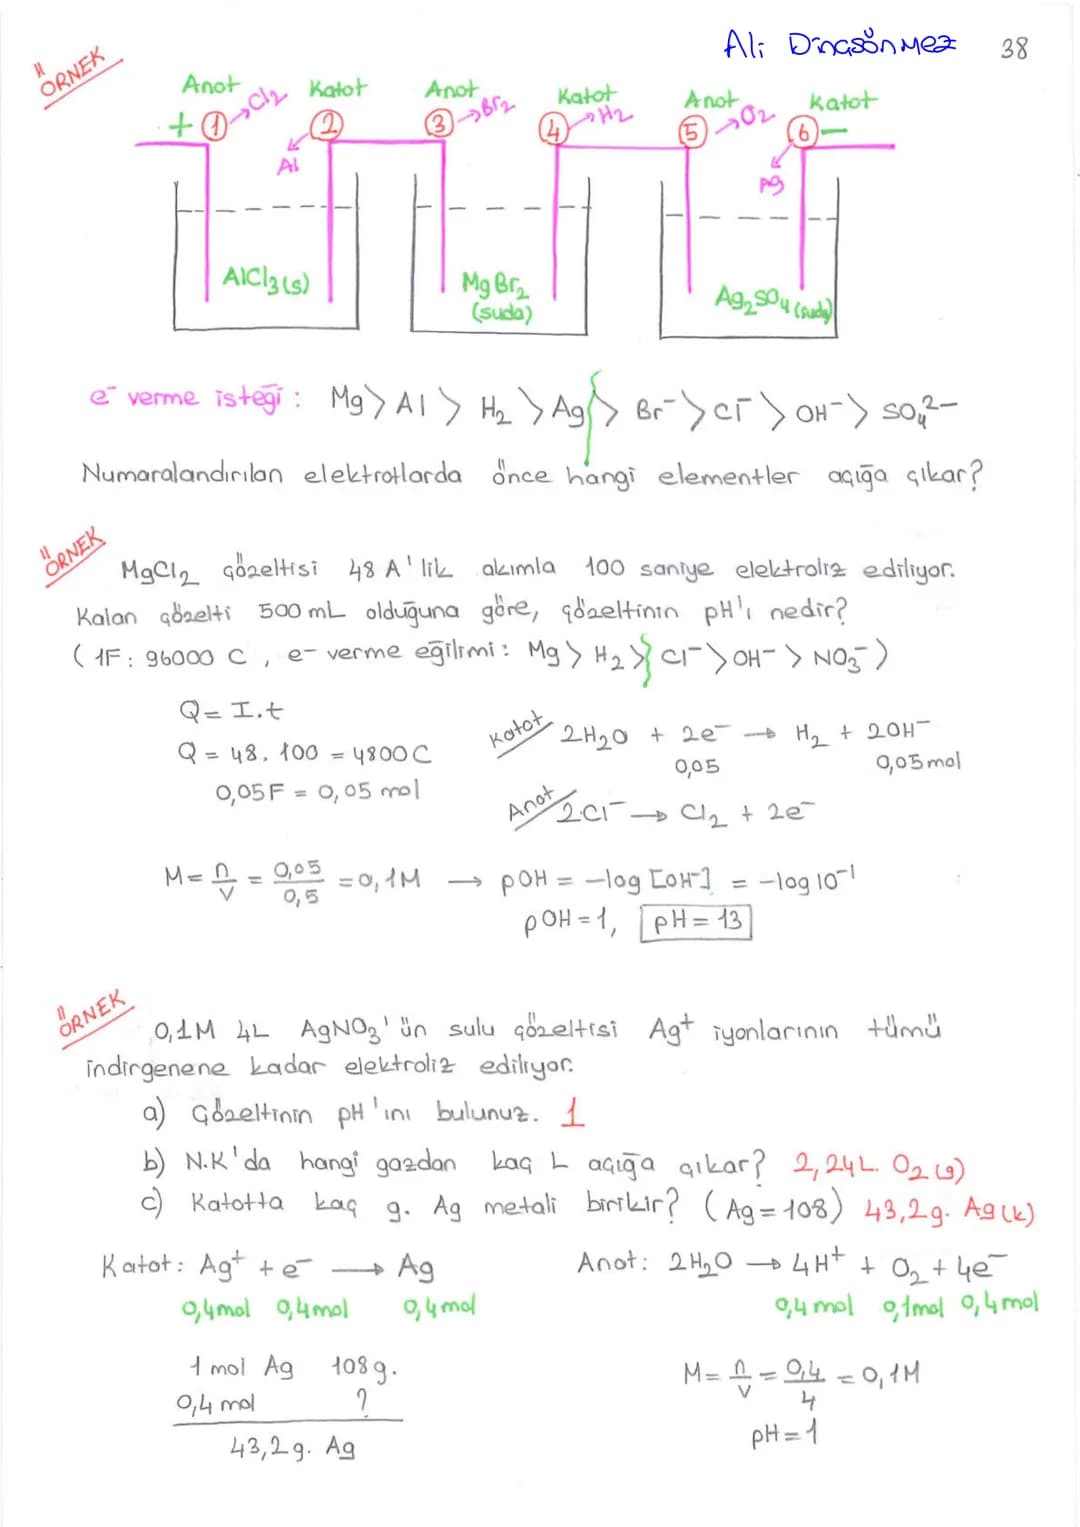 Ali Dinasönmez 38
ÖRNEK
Anot Katot Anot Katot Anot Katot
+ 1 → Cl2 2 3 → Br2 4 → H2 5 → O2 6 −
Al Ag
AlCl3(s) MgBr2 (suda) Ag2SO4 (suda)
e⁻ verme isteği : Mg > Al > H2 > Ag > Br⁻ > Cl⁻ > OH⁻ > SO4²⁻
Numaralandırılan elektrotlarda önce hangi elementler açığa çıkar?
ÖRNEK
MgCl2 çözeltisi 48 A'lik akımla 100 saniye elektroliz ediliyor.
Kalan çözelti 500 mL olduğuna göre, çözeltinin pH'ı nedir?
( 1F : 96000 C , e- verme eğilimi : Mg > H2 > Cl⁻ > OH⁻ > NO3⁻ )
Q = I.t
Q = 48. 100 = 4800 C
0,05F = 0,05 mol
Katot 2H2O + 2e⁻ → H2 + 2OH⁻
0,05 0,05 mol
Anot 2Cl⁻ → Cl2 + 2e⁻
M = n/V = 0,05/0,5 = 0,1M → pOH = −log [OH⁻] = −log 10⁻¹
pOH = 1, pH = 13
ÖRNEK
0,1M 4L AgNO3'ün sulu çözeltisi Ag⁺ iyonlarının tümü
indirgenene kadar elektroliz ediliyor.
a) Çözeltinin pH'ını bulunuz. 1
b) N.K'da hangi gazdan kaç L açığa çıkar? 2,24L. O2(g)
c) Katotta kaç g. Ag metali birikir? (Ag = 108) 43,2g. Ag(k)
Katot : Ag⁺ + e⁻ → Ag
0,4mol 0,4mol 0,4mol
Anot : 2H2O → 4H⁺ + O2 + 4e⁻
0,4 mol 0,1mol 0,4 mol
1 mol Ag 108 g.
0,4 mol ?
43,2 g. Ag
M = n/V = 0,4/4 = 0,1M
pH = 1